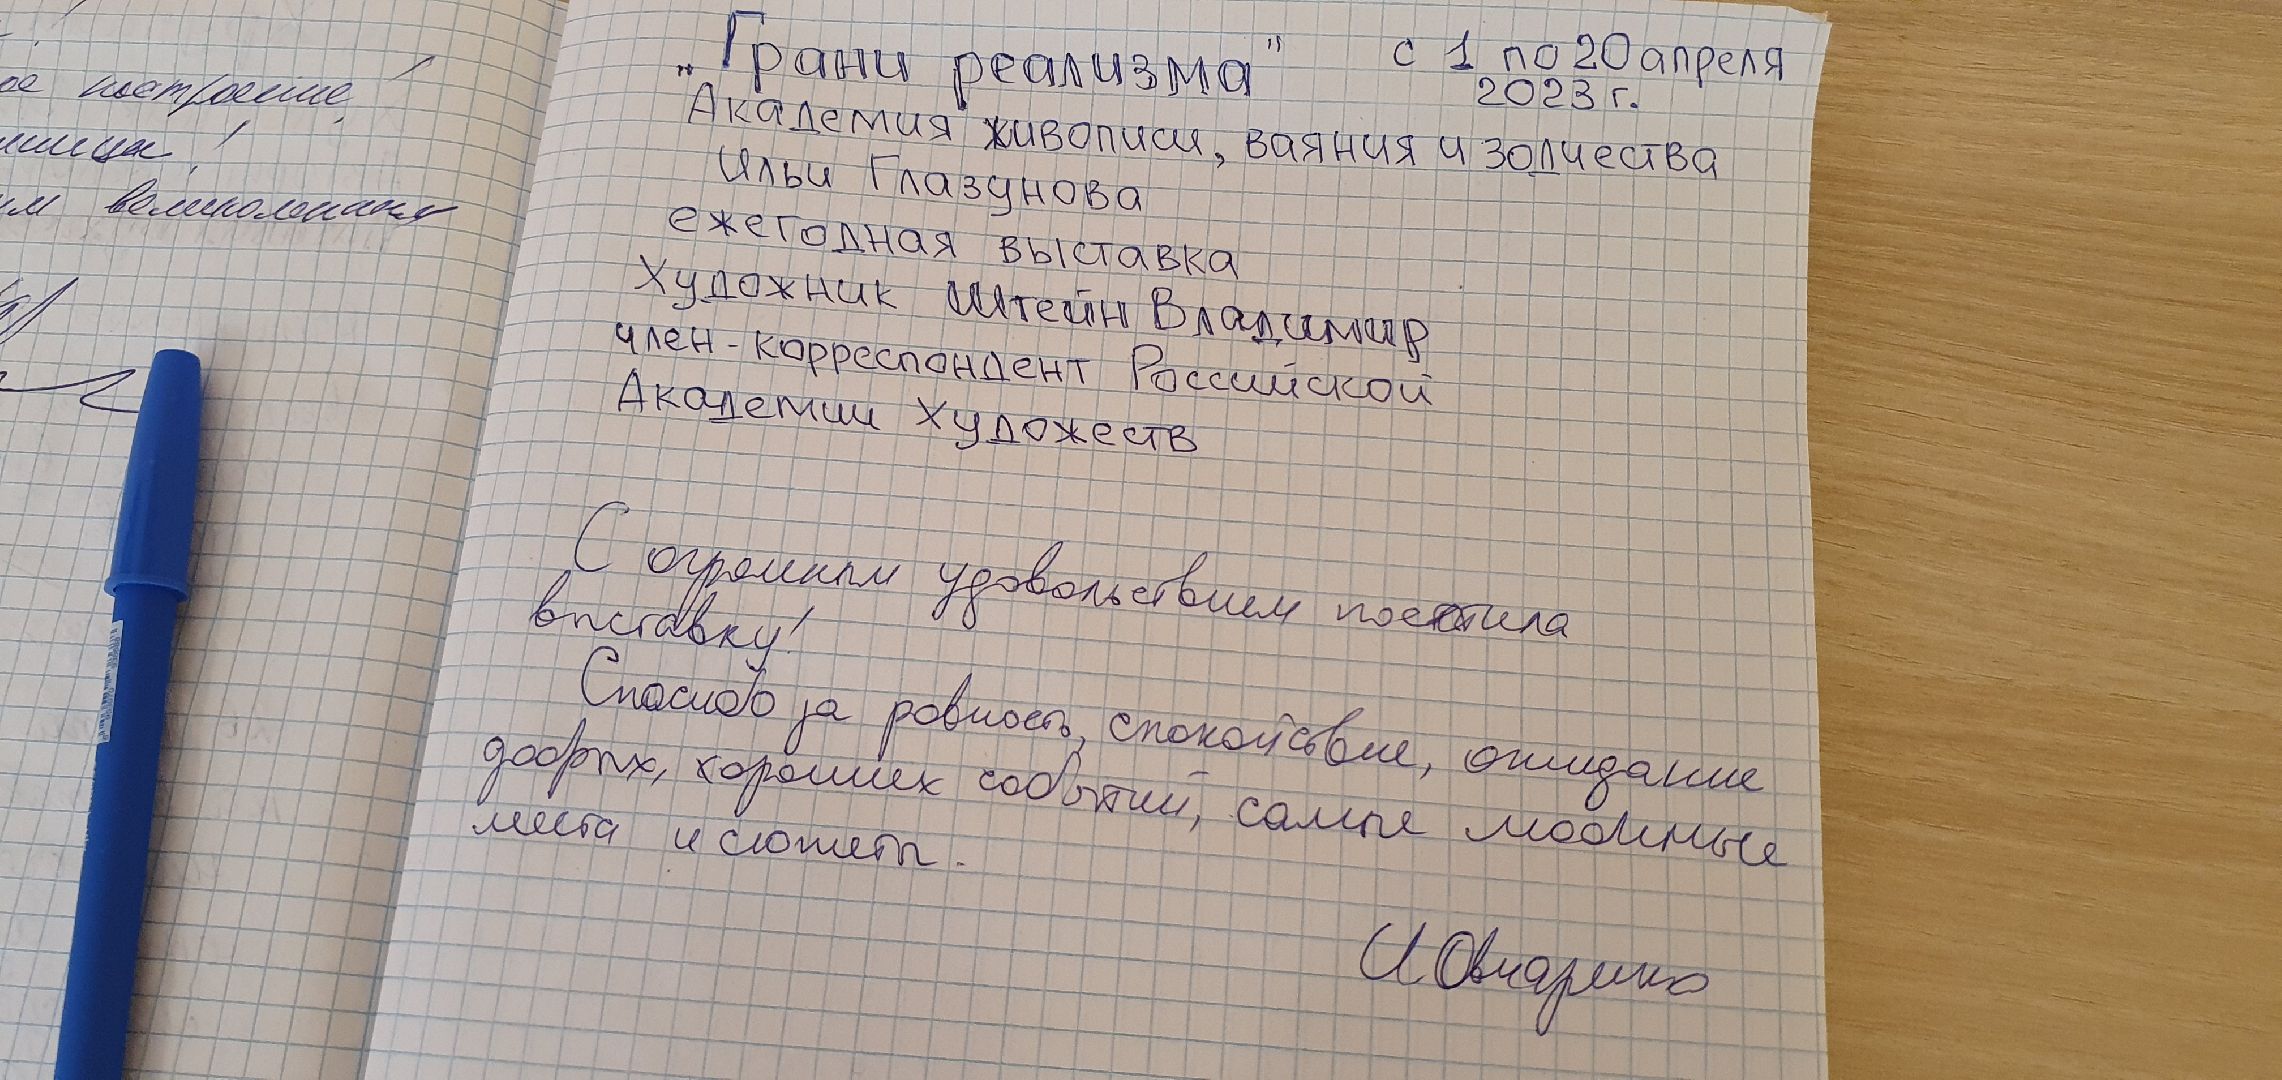 настроение,
„Грани реализма" с 1 по 20 апреля
2023 г.
Академия живописи, ваяния и зодчества
Ильи Глазунова
ежегодная выставка
Художник Штейн Владимир
член-корреспондент Российской
Академии Художеств
С огромным удовольствием посетила
выставку!
Спасибо за ровность, спокойствие, ожидание
добрых, хороших событий, самые
места и сюжеты.
И Овчаренко